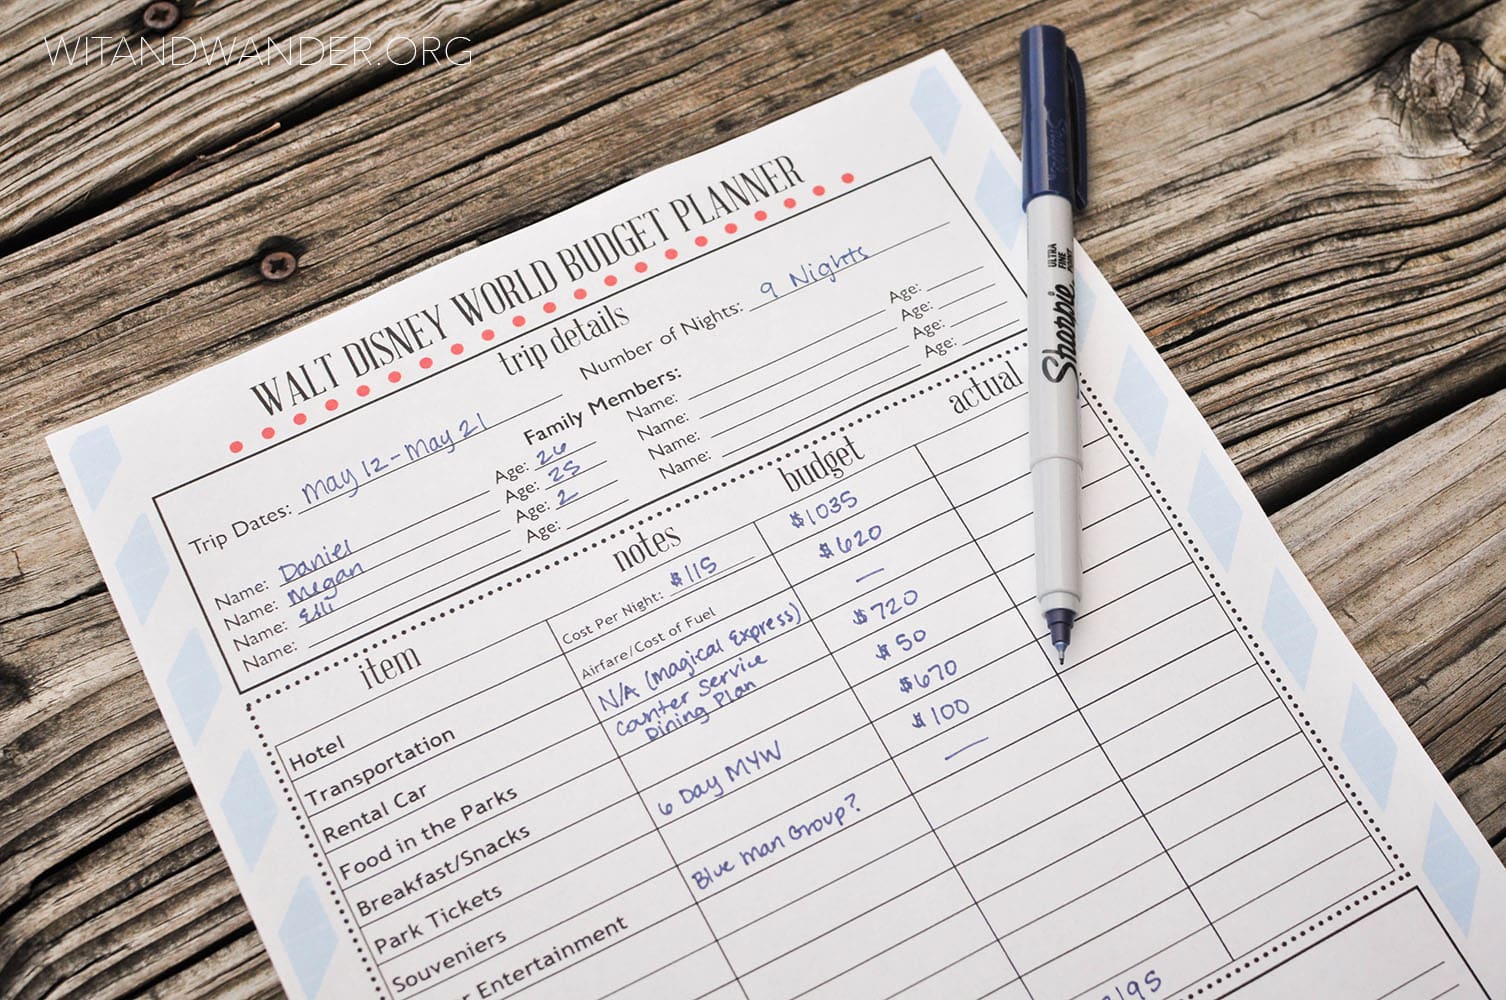 WITANDWANDER.ORG
WALT DISNEY WORLD BUDGET PLANNER
trip details
Trip Dates: May 12 - May 21 Number of Nights: 9 Nights
Family Members:
Name: Daniel Age: 26 Name: Age:
Name: Megan Age: 25 Name: Age:
Name: Elli Age: 2 Name: Age:
Name: Age: Name: Age:
item notes budget actual
Hotel Cost Per Night: $115 $1035
Transportation Airfare/Cost of Fuel $620
Rental Car N/A (Magical Express) —
Food in the Parks Counter Service $720
Dining Plan
Breakfast/Snacks $50
Park Tickets 6 Day MYW $670
Souveniers $100
Entertainment Blue Man Group? —
Sharpie
ULTRA
FINE
POINT